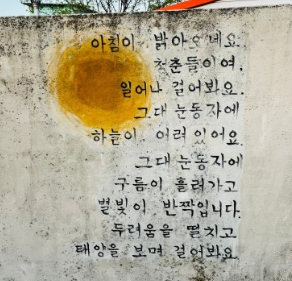 아침이 밝아오네요.
청춘들이여.
일어나 걸어봐요.
그대 눈동자에
하늘이 어려 있어요.
그대 눈동자에
구름이 흘러가고
별빛이 반짝입니다.
두려움을 떨치고
태양을 보며 걸어봐요.